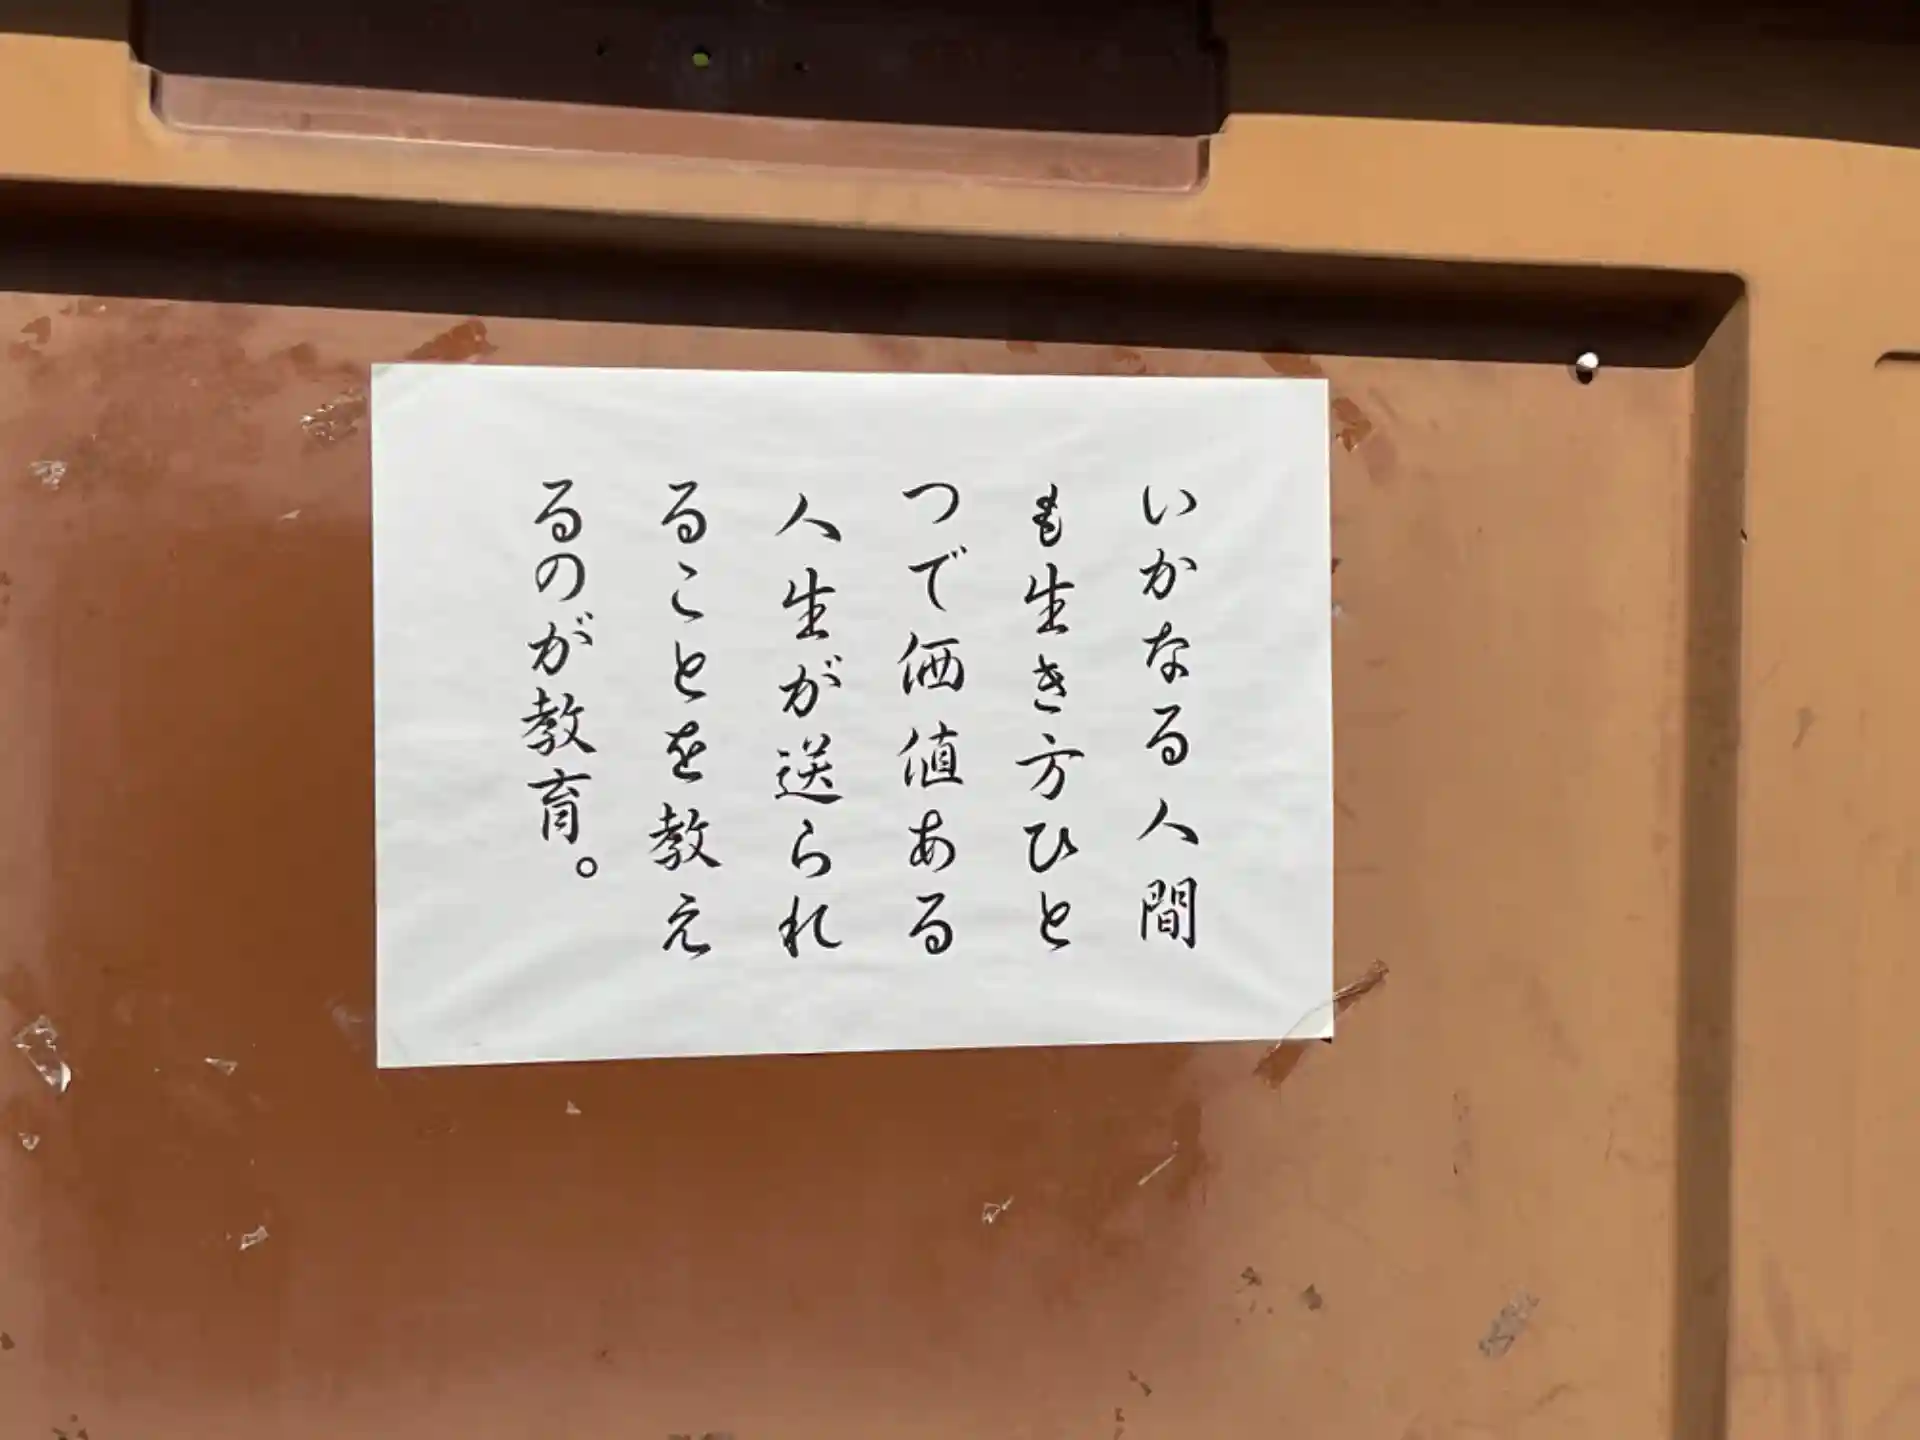 いかなる人間
も生き方ひと
つで価値ある
人生が送られ
ることを教え
るのが教育。